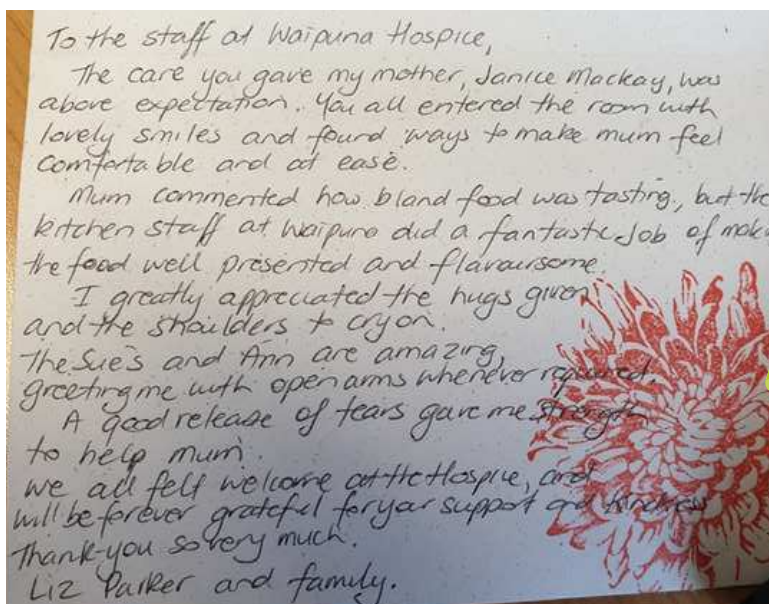 To the staff at Waipuna Hospice,
The care you gave my mother, Janice Mackay, was
above expectation. You all entered the room with
lovely smiles and found ways to make mum feel
comfortable and at ease.
Mum commented how bland food was tasting, but the
kitchen staff at Waipuna did a fantastic job of mak
the food well presented and flavoursome.
I greatly appreciated the hugs given
and the shoulders to cry on.
The Sue's and Ann are amazing,
greeting me with open arms whenever required.
A good release of tears gave me strength
to help mum.
We all felt welcome at the Hospice, and
will be forever grateful for your support and kindness
Thank-you so very much.
Liz Parker and family.